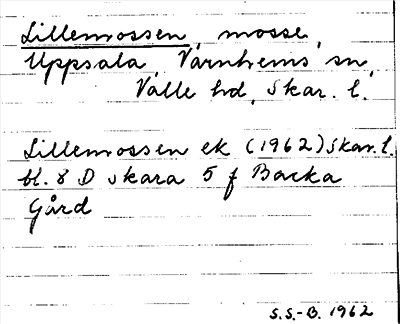 Lillemossen, mosse,
Uppsala, Varnhems sn,
Valle hd, Skar. l.
Lillemossen ek (1962) Skar. l.
bl. 8 D Skara 5 f Backa
Gård
S.S.-B. 1962